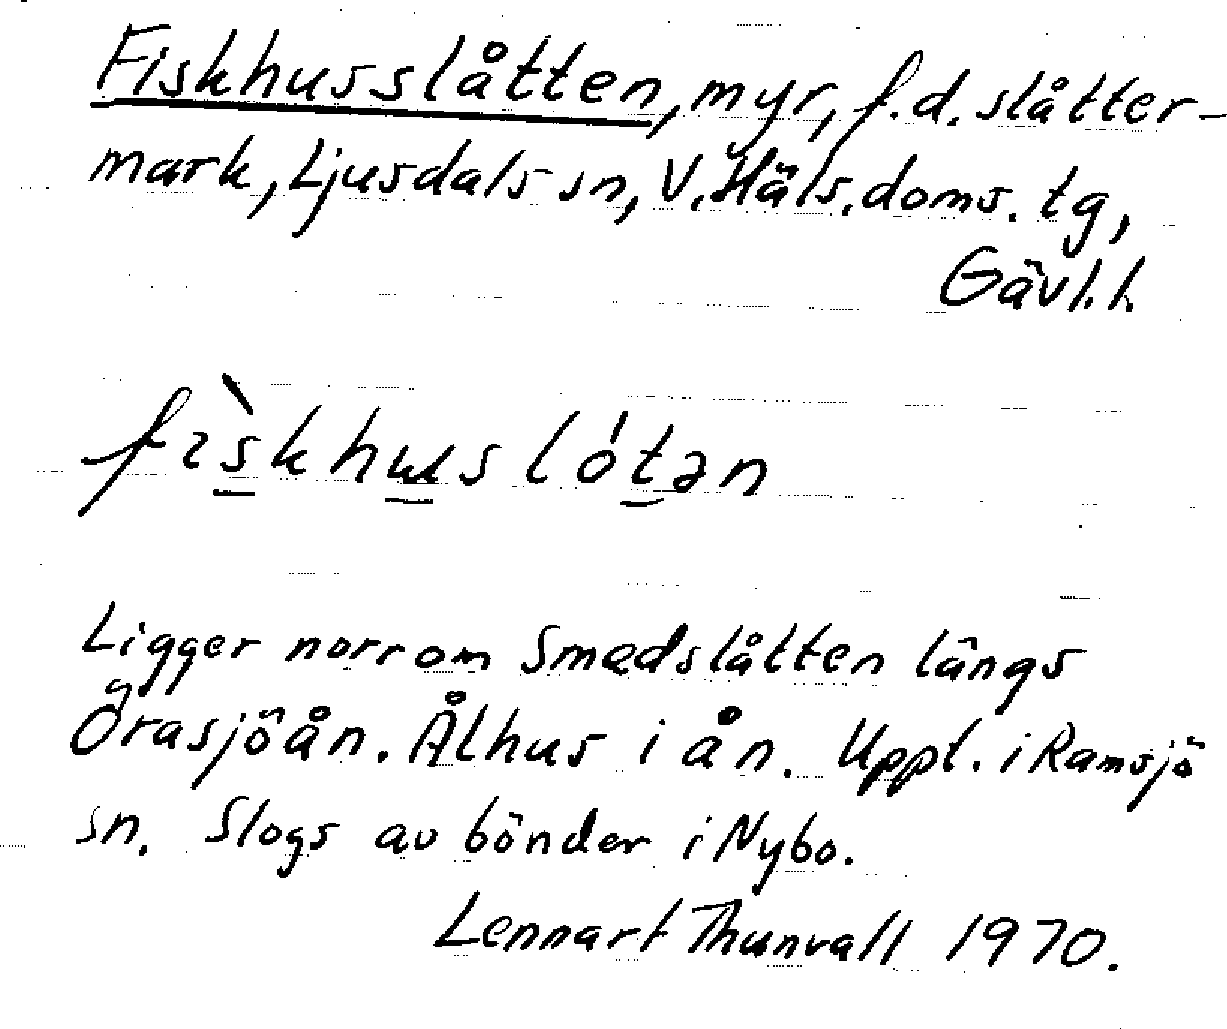 Fiskhusslåtten, myr, f.d. slåtter-
mark, Ljusdals sn, V. Häls. doms. tg,
Gävl.l.
fìskhuslótən
Ligger norr om Smedslåtten längs
Örasjöån. Ålhus i ån. Uppt. i Ramsjö
sn. Slogs av bönder i Nybo.
Lennart Thunvall 1970.